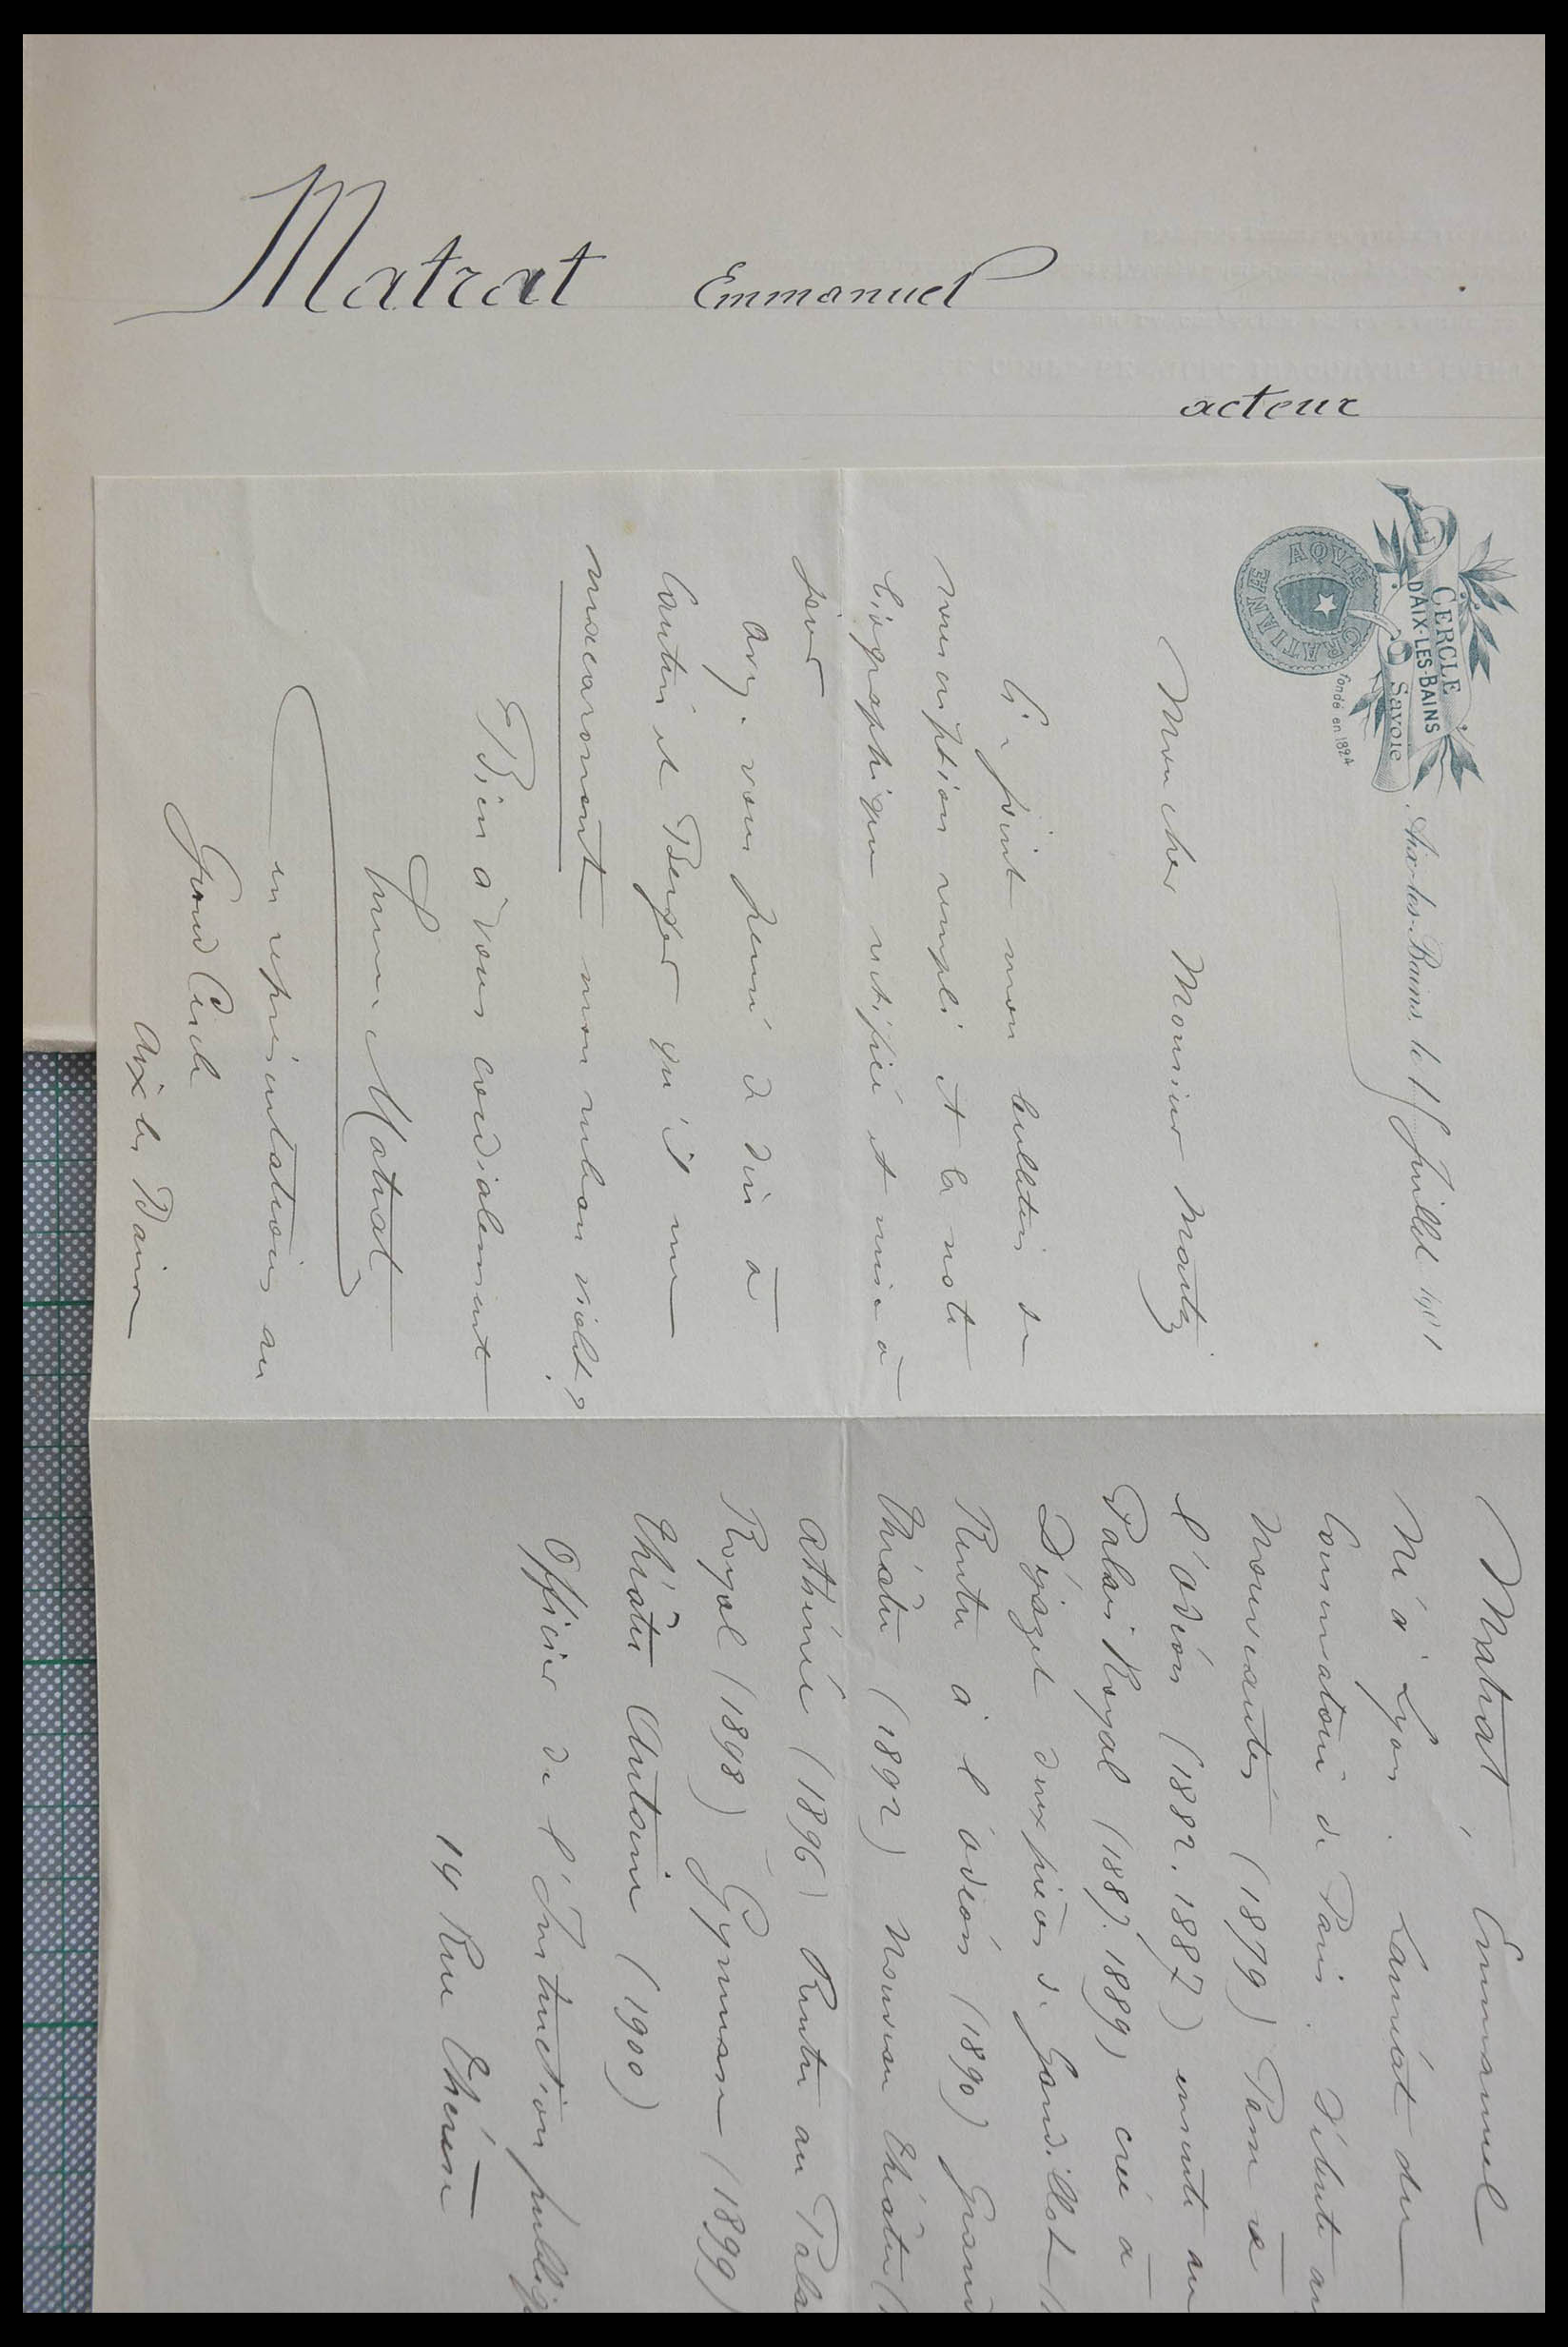 Matrat Emmanuel
acteur
CERCLE
D'AIX-LES-BAINS
Savoie
fondé en 1824
AQVÆ GRATIANÆ
Aix-les-Bains, le 1 Juillet 1901
Mon cher Monsieur Martz
Ci-joint mon bulletin de
souscription rempli et la note
biographique rectifiée et mise à
jour
Avez-vous pensé à dire à
et Berger qu'il me
mon ruban violet?
Bien à vous cordialement
Matrat
en représentations au
Grand Cercle
Aix les Bains
Matrat, Emmanuel
Né à Lyon. Lauréat du
Conservatoire de Paris. Débute aux
Nouveautés (1879) Passe à
l'Odéon (1882.1887) ensuite au
Palais Royal (1887.1889) crée à
Déjazet deux pièces de Gandillot
Rentre à l'Odéon (1890) Grand
Théâtre (1892) Nouveau Théâtre (
Athénée (1896) Rentre au Pala
Royal (1898) Gymnase (1899)
Théâtre Antoine (1900)
Officier de l'Instruction publiq
14 Rue Thérèse